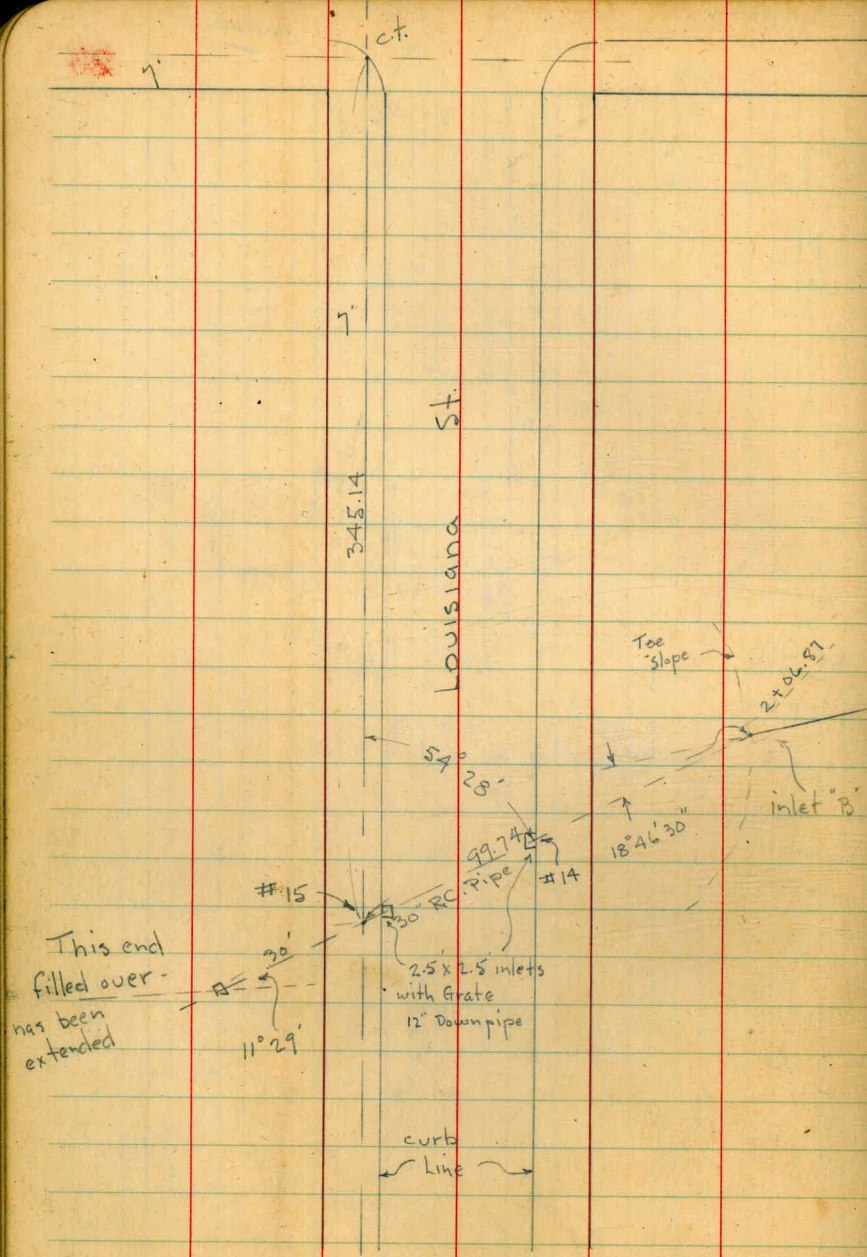 c.t.
7'
7'
345.14
Louisiana St.
Toe
slope
2+06.87
54° 28'
inlet "B"
18°46'30"
99.74
30" R.C. Pipe
#14
#15
30'
This end
filled over-
has been
extended
11°29'
2.5' x 2.5' inlets
with Grate
12" Downpipe
curb
Line